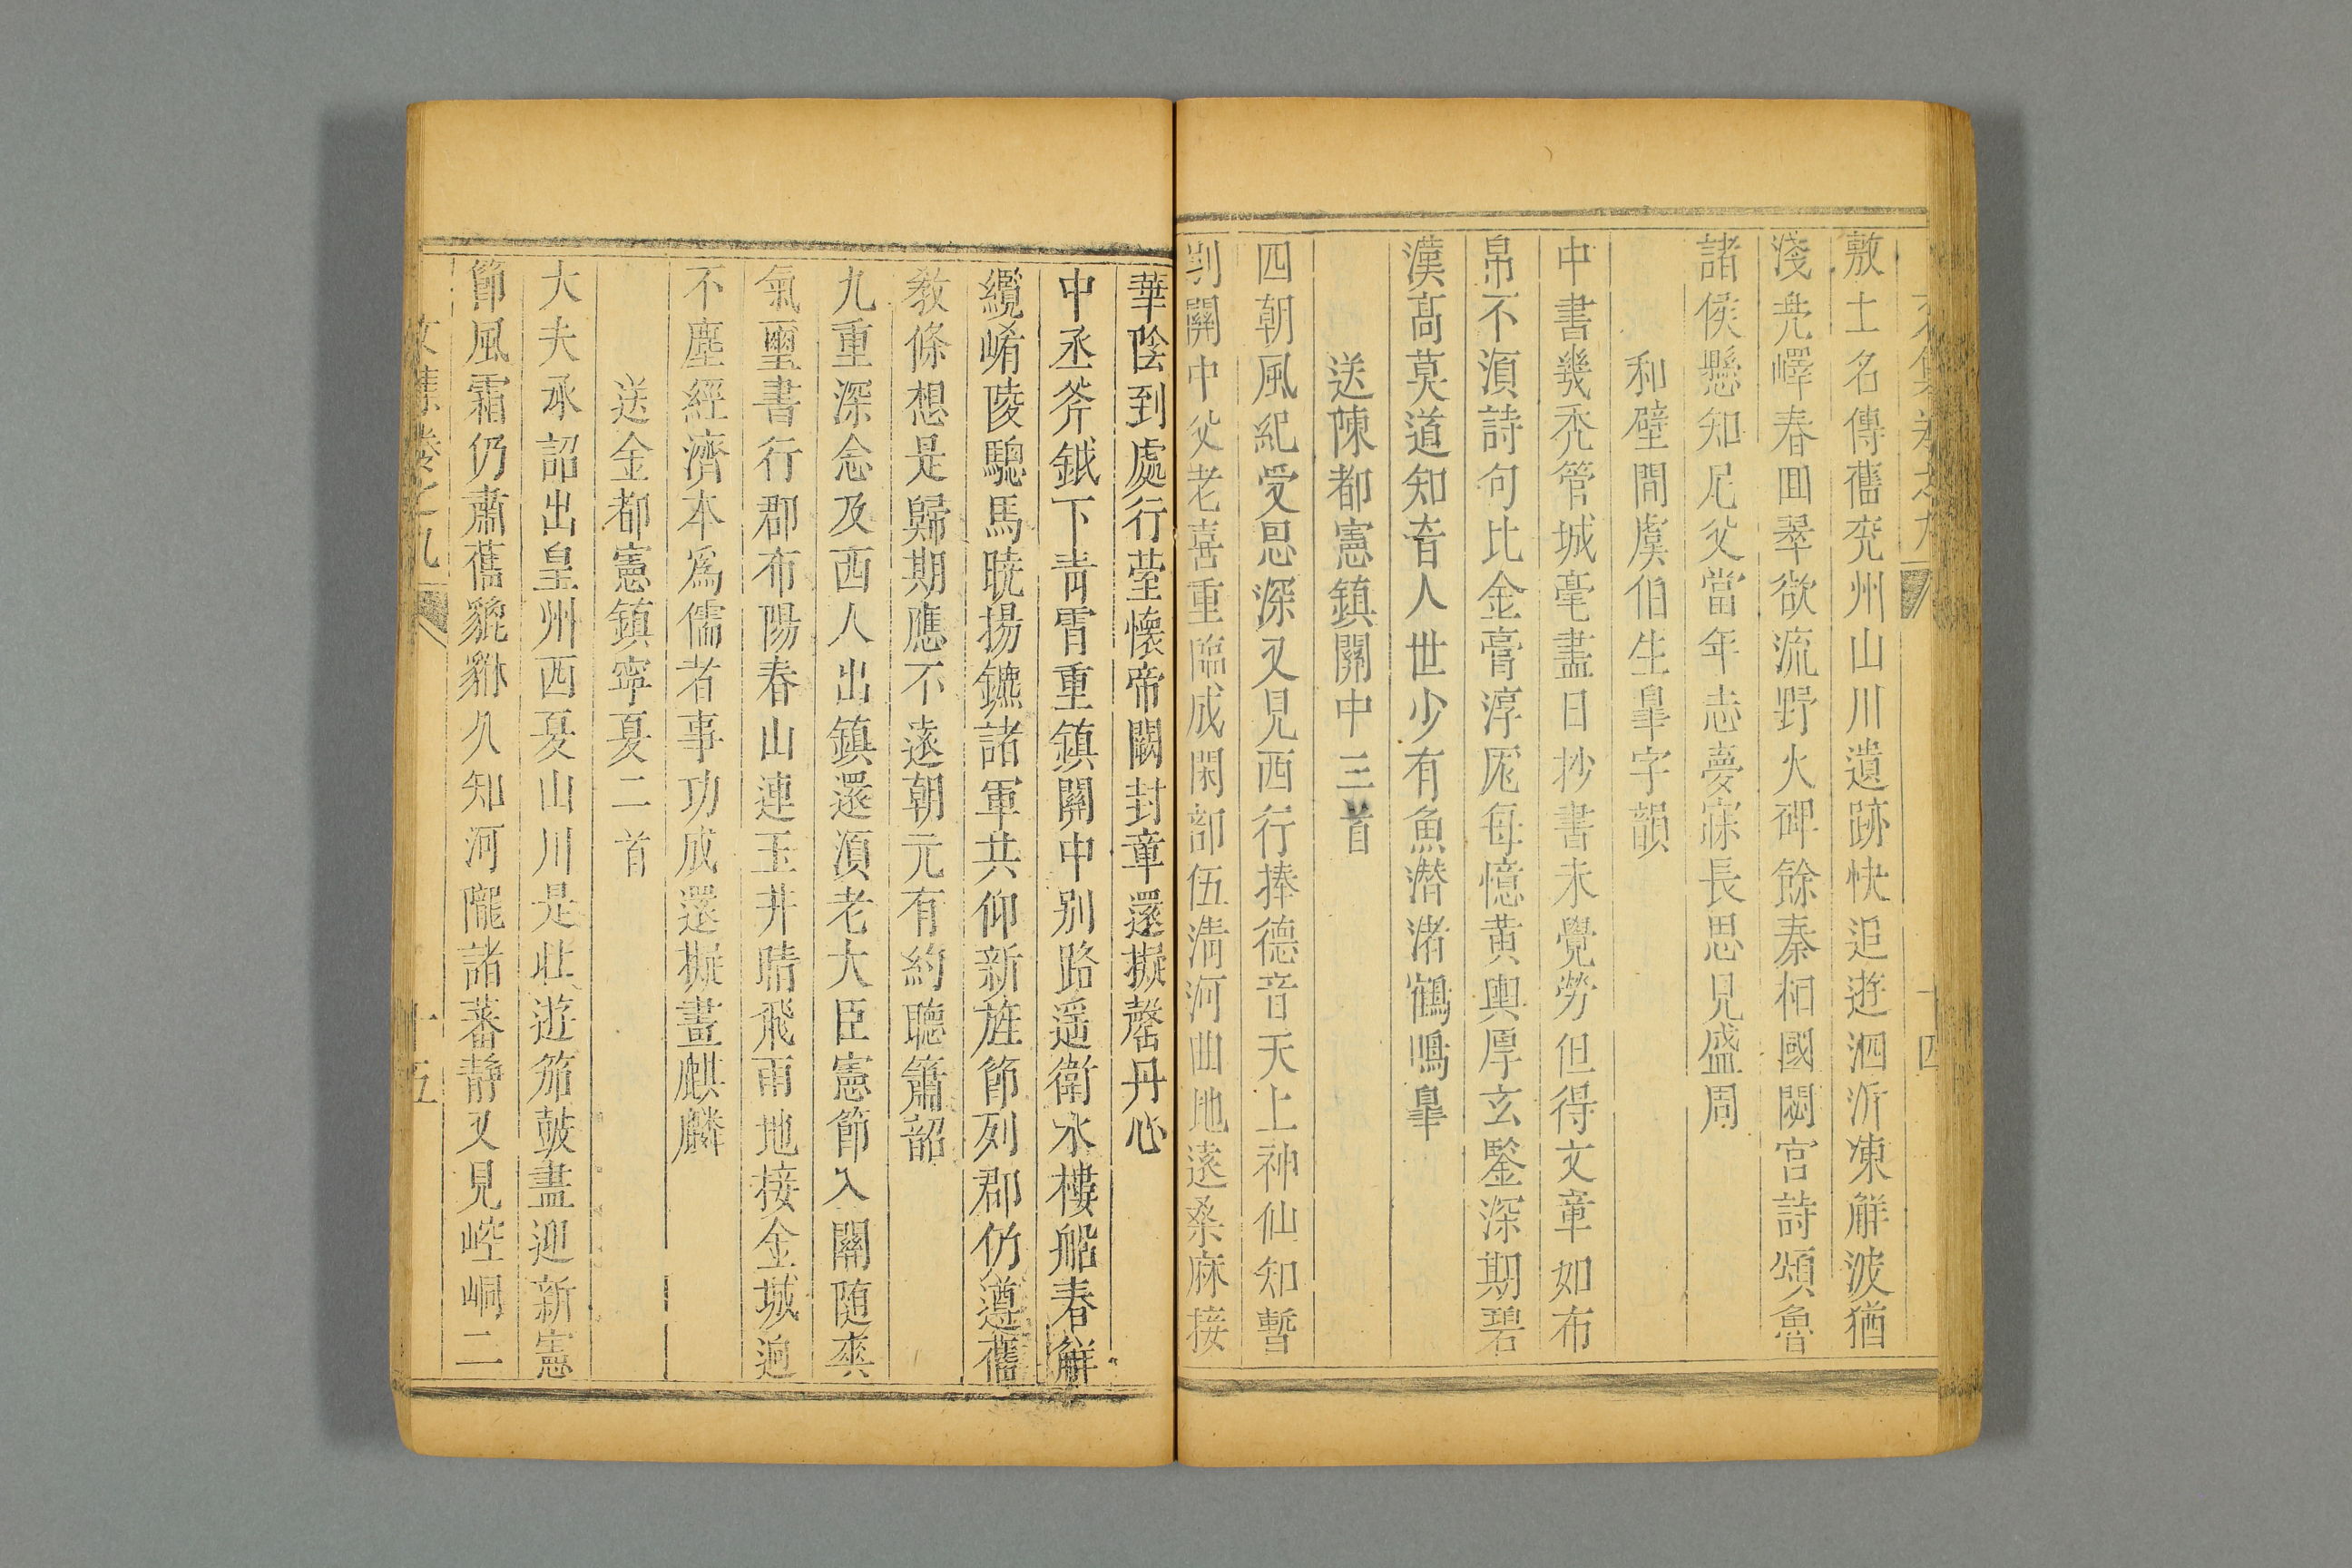 敷土名傳舊兖州山川遺跡快追遊泗沂凍觧波猶
淺堯嶧春回翠欲流野火碑餘秦相國閟宫詩頌魯
諸侯懸知尼父當年志夢寐長思見盛周
和壁間虞伯生臯字韻
中書幾秃管城毫盡日抄書未覺勞但得文章如布
帛不湏詩句比金膏淳厖每憶黄輿厚玄鑒深期碧
漢高莫道知音人世少有魚潛渚鶴鳴臯
送陳都憲鎮關中三首
四朝風紀受恩深又見西行捧德音天上神仙知暫
到關中父老喜重臨成閑部伍清河曲地遠桑麻接
華陰到處行塋懷帝闕封章還擬罄丹心
中丞斧鉞下青霄重鎮關中别路遥衛水樓船春觧
纜崤陵驄馬曉揚鑣諸軍共仰新旌節列郡仍遵舊
教條想是歸期應不遠朝元有約聽簫韶
九重深念及西人出鎮還湏老大臣憲節入關随爽
氣璽書行郡布陽春山連玉井晴飛雨地接金城迥
不塵經濟本爲儒者事功成還擬畫麒麟
送金都憲鎮寧夏二首
大夫承詔出皇州西夏山川是壯遊笳鼓盡迎新憲
節風霜仍肅舊貔貅久知河隴諸蕃静又見崆峒二
文集卷之九
十五